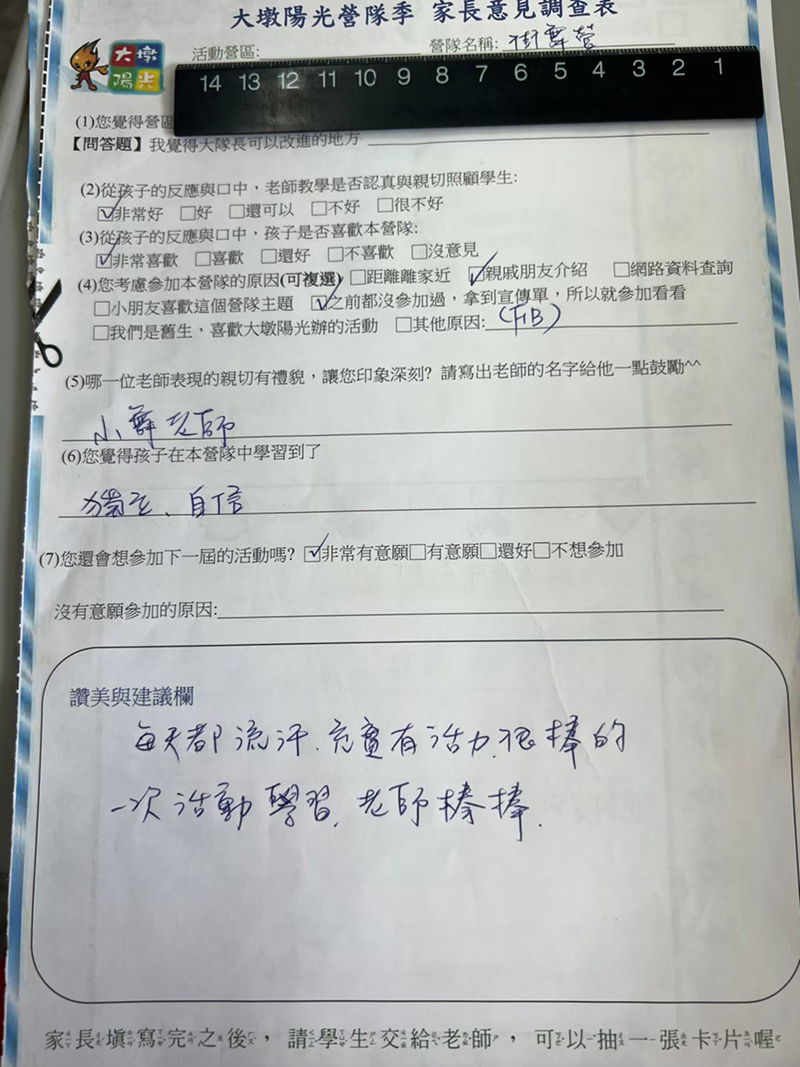 大墩陽光營隊季 家長意見調查表
大墩
陽光
活動營區: 營隊名稱: 街舞營
14 13 12 11 10 9 8 7 6 5 4 3 2 1
(1)您覺得營區
【問答題】我覺得大隊長可以改進的地方
(2)從孩子的反應與口中，老師教學是否認真與親切照顧學生:
☑非常好 □好 □還可以 □不好 □很不好
(3)從孩子的反應與口中，孩子是否喜歡本營隊:
☑非常喜歡 □喜歡 □還好 □不喜歡 □沒意見
(4)您考慮參加本營隊的原因(可複選) □距離離家近 ☑親戚朋友介紹 □網路資料查詢
□小朋友喜歡這個營隊主題 ☑之前都沒參加過，拿到宣傳單，所以就參加看看
□我們是舊生，喜歡大墩陽光辦的活動 □其他原因: (FB)
(5)哪一位老師表現的親切有禮貌，讓您印象深刻? 請寫出老師的名字給他一點鼓勵^^
小舞老師
(6)您覺得孩子在本營隊中學習到了
獨立、自信
(7)您還會想參加下一屆的活動嗎? ☑非常有意願□有意願□還好□不想參加
沒有意願參加的原因:
讚美與建議欄
每天都流汗.充實有活力.很棒的
一次活動學習.老師棒棒.
家長填寫完之後，請學生交給老師，可以抽一張卡片喔